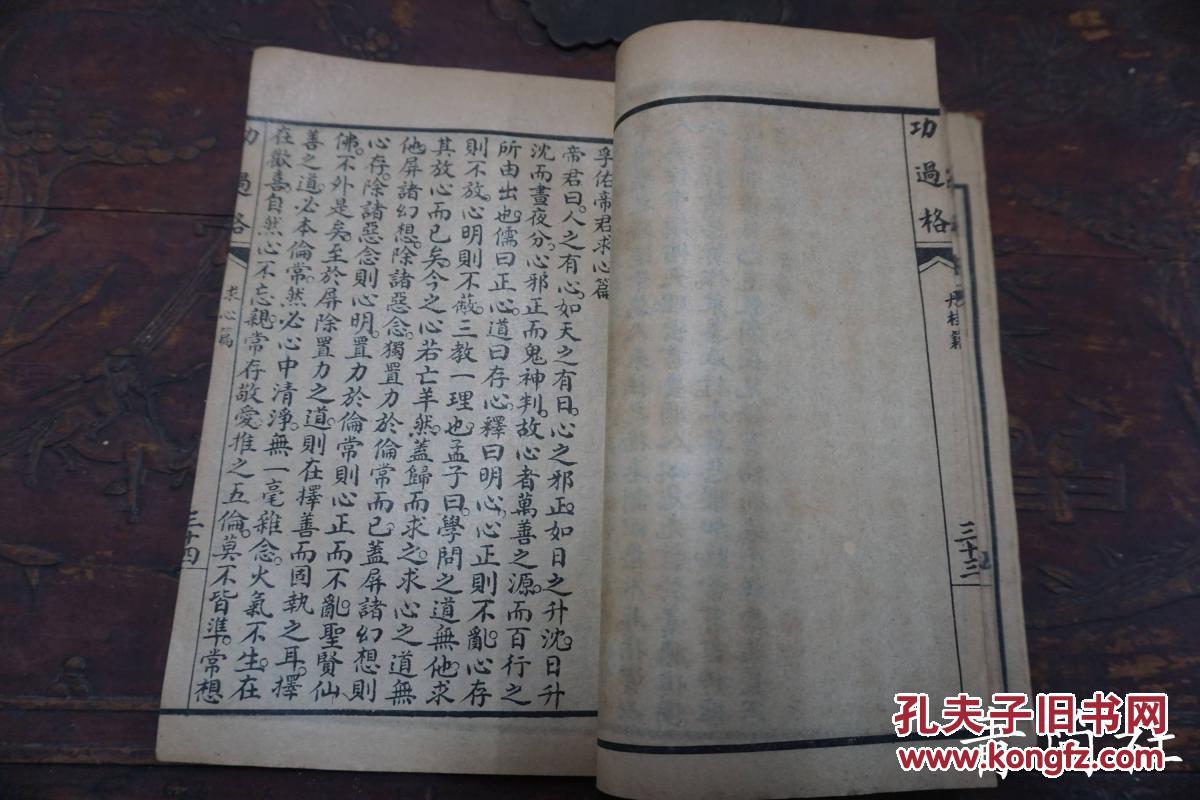 功過格
丹桂籍
三十三
孚佑帝君求心篇
帝君曰。人之有心。如天之有日。心之邪正。如日之升沈。日升
沈而晝夜分。心邪正而鬼神判。故心者萬善之源。而百行之
所由出也。儒曰正心。道曰存心。釋曰明心。心正則不亂。心存
則不放。心明則不蔽。三教一理也。孟子曰。學問之道無他。求
其放心而已矣。今之心若亡羊然。蓋歸而求之。求心之道無
他。屏諸幻想。除諸惡念。獨置力於倫常而已。蓋屏諸幻想則
心存。除諸惡念則心明。置力於倫常則心正而不亂。聖賢仙
佛。不外是矣。至於屏除置力之道。則在擇善而固執之耳。擇
善之道。必本倫常。然必心中清淨。無一毫雜念。火氣不生。在
在歡喜。自然心不忘親。常存敬愛。推之五倫。莫不皆準。常想
功過格
求心篇
三十四
孔夫子旧书网
www.kongfz.com